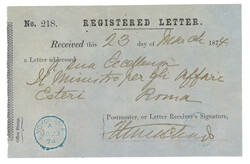 No. 218. REGISTERED LETTER.
Received this 23 day of March 1874
a Letter addressed: Sua Eccellenza
Il Ministro per gli Affari
Esteri Roma
Postmaster, or Letter Receiver's Signature,